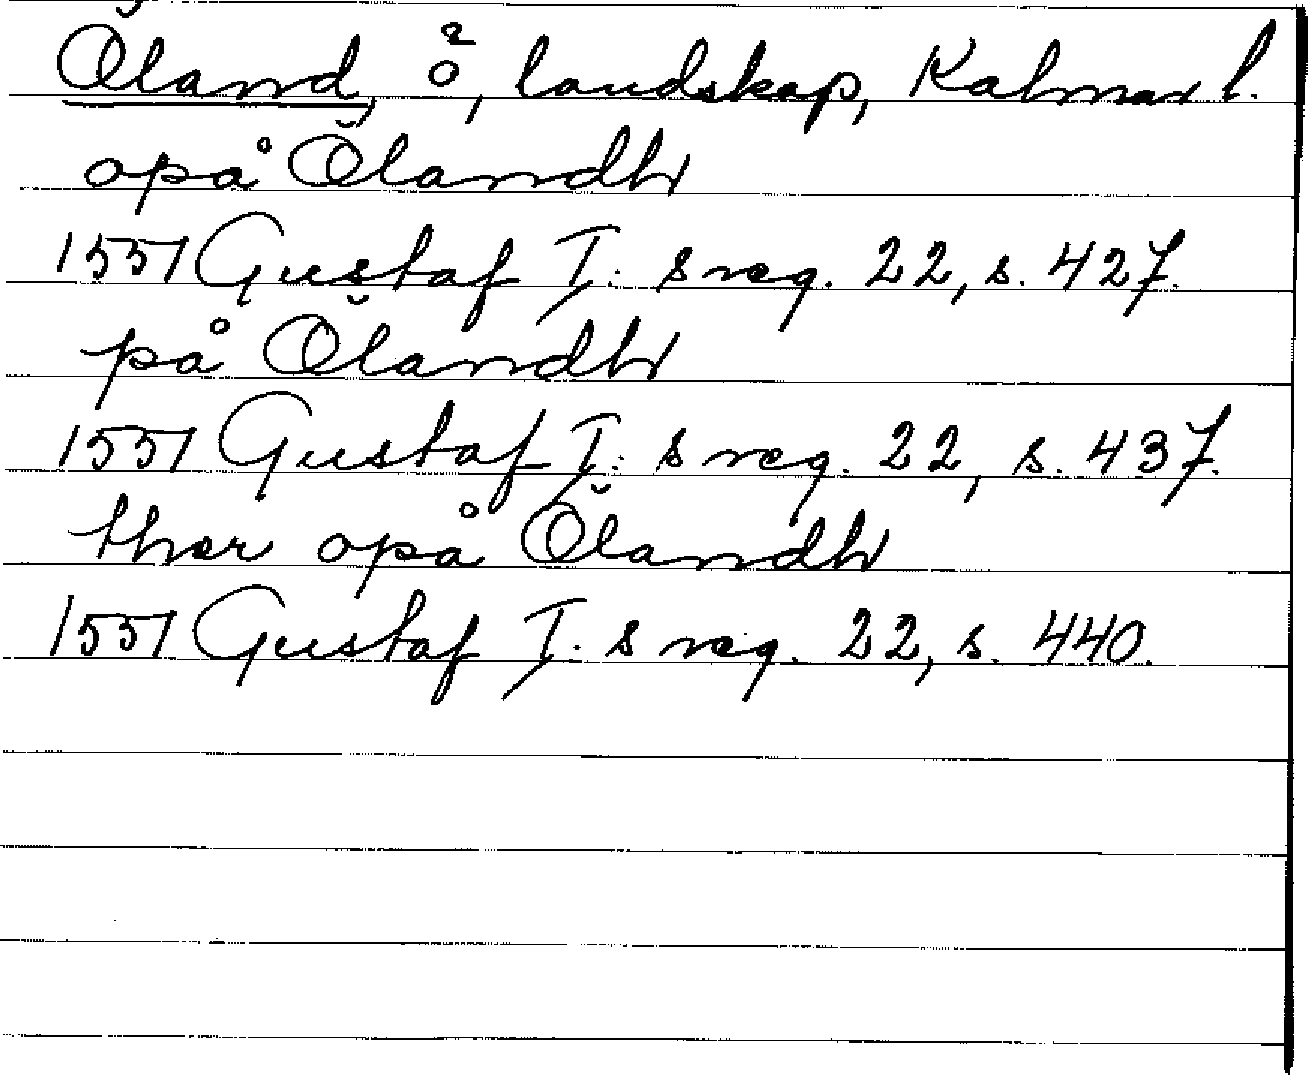 Öland, ö, landskap, Kalmar l.
opå Ölandh
1551 Gustaf I:s reg. 22, s. 427.
på Ölandh
1551 Gustaf I:s reg. 22, s. 437.
ther opå Ölandh
1551 Gustaf I:s reg. 22, s. 440.